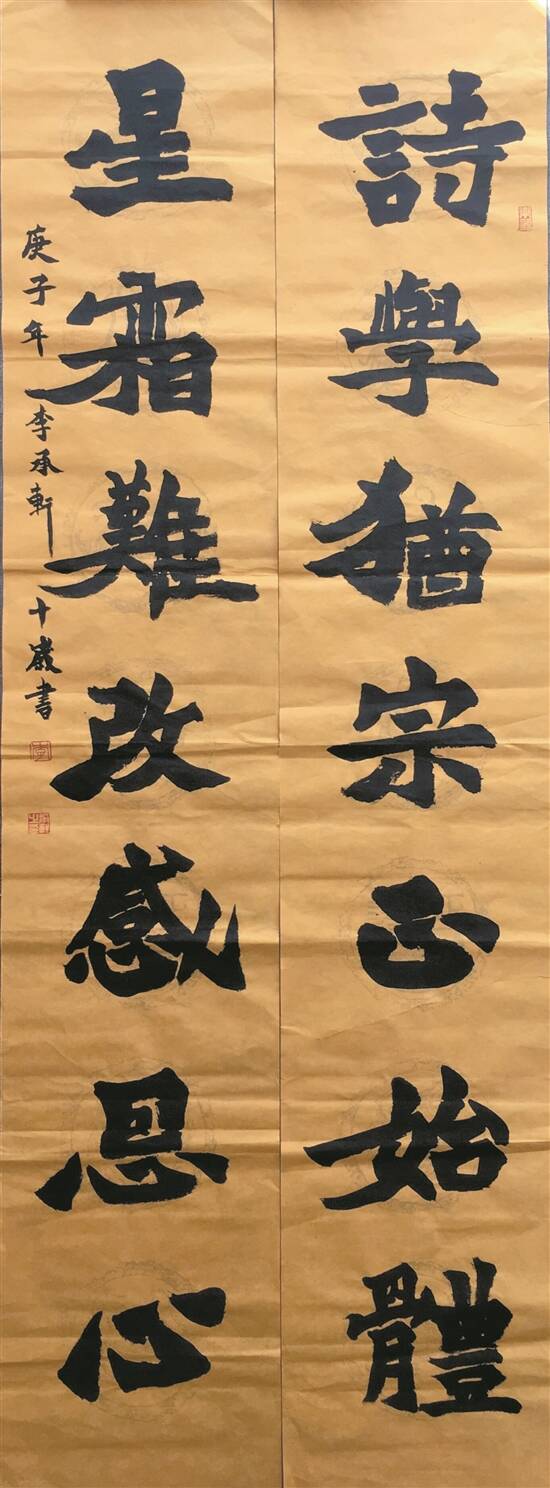 詩學猶宗正始體
星霜難改感恩心
庚子年 李承軒 十歲書